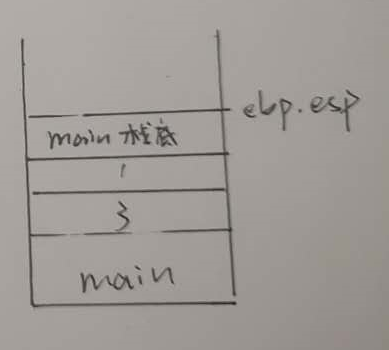 ebp.esp
main 栈底
1
3
main